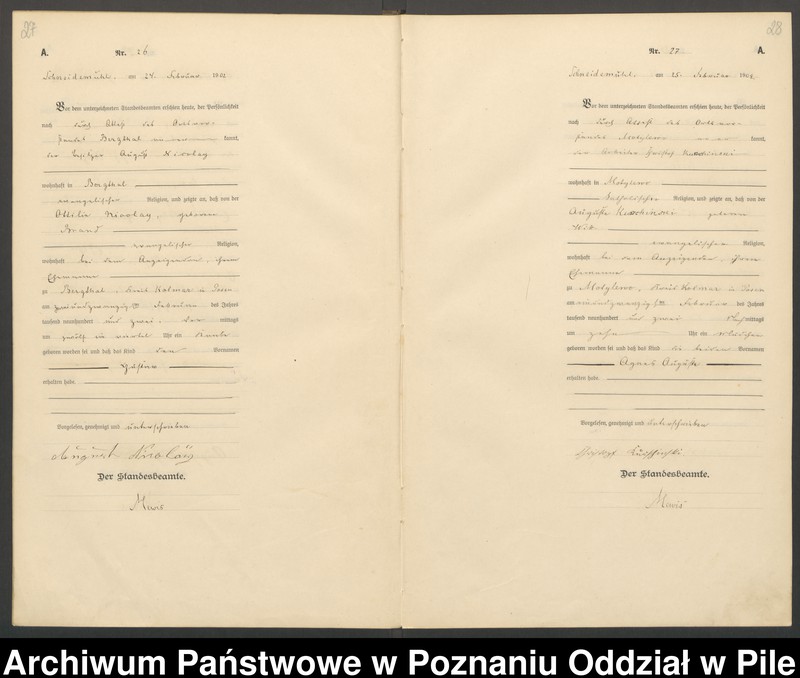 27
A.
Nr. 26
Schneidemühl, am 24. Februar 1902
Vor dem unterzeichneten Standesbeamten erschien heute, der Persönlichkeit
nach durch Attest des Ortsvor-
standes Bergthal kannt,
der Besitzer August Nicolay
wohnhaft in Bergthal
evangelischer Religion, und zeigte an, daß von der
Ottilie Nicolay, geborene
Brand
evangelischer Religion,
wohnhaft bei dem Anzeigenden, ihrem
Ehemanne
zu Bergthal, Kreis Kolmar in Posen
am zweiundzwanzigsten Februar des Jahres
tausend neunhundert und zwei mittags
um zwölf Uhr ein Knabe
geboren worden sei und daß das Kind den Vornamen
Gustav
erhalten habe.
Vorgelesen, genehmigt und unterschrieben
August Nicolay
Der Standesbeamte.
28
Nr. 27
A.
Schneidemühl, am 25. Februar 1902
Vor dem unterzeichneten Standesbeamten erschien heute, der Persönlichkeit
nach durch Attest des Ortsvor-
standes Motylewo kannt,
der Arbeiter
wohnhaft in Motylewo
katholischer Religion, und zeigte an, daß von der
Auguste geborene
evangelischer Religion,
wohnhaft bei dem Anzeigenden, ihrem
Ehemanne
zu Motylewo, Kreis Kolmar in Posen
am einundzwanzigsten Februar des Jahres
tausend neunhundert und zwei mittags
um zehn Uhr ein Mädchen
geboren worden sei und daß das Kind die beiden Vornamen
Agnes Auguste
erhalten habe.
Vorgelesen, genehmigt und unterschrieben
Der Standesbeamte.
Archiwum Państwowe w Poznaniu Oddział w Pile